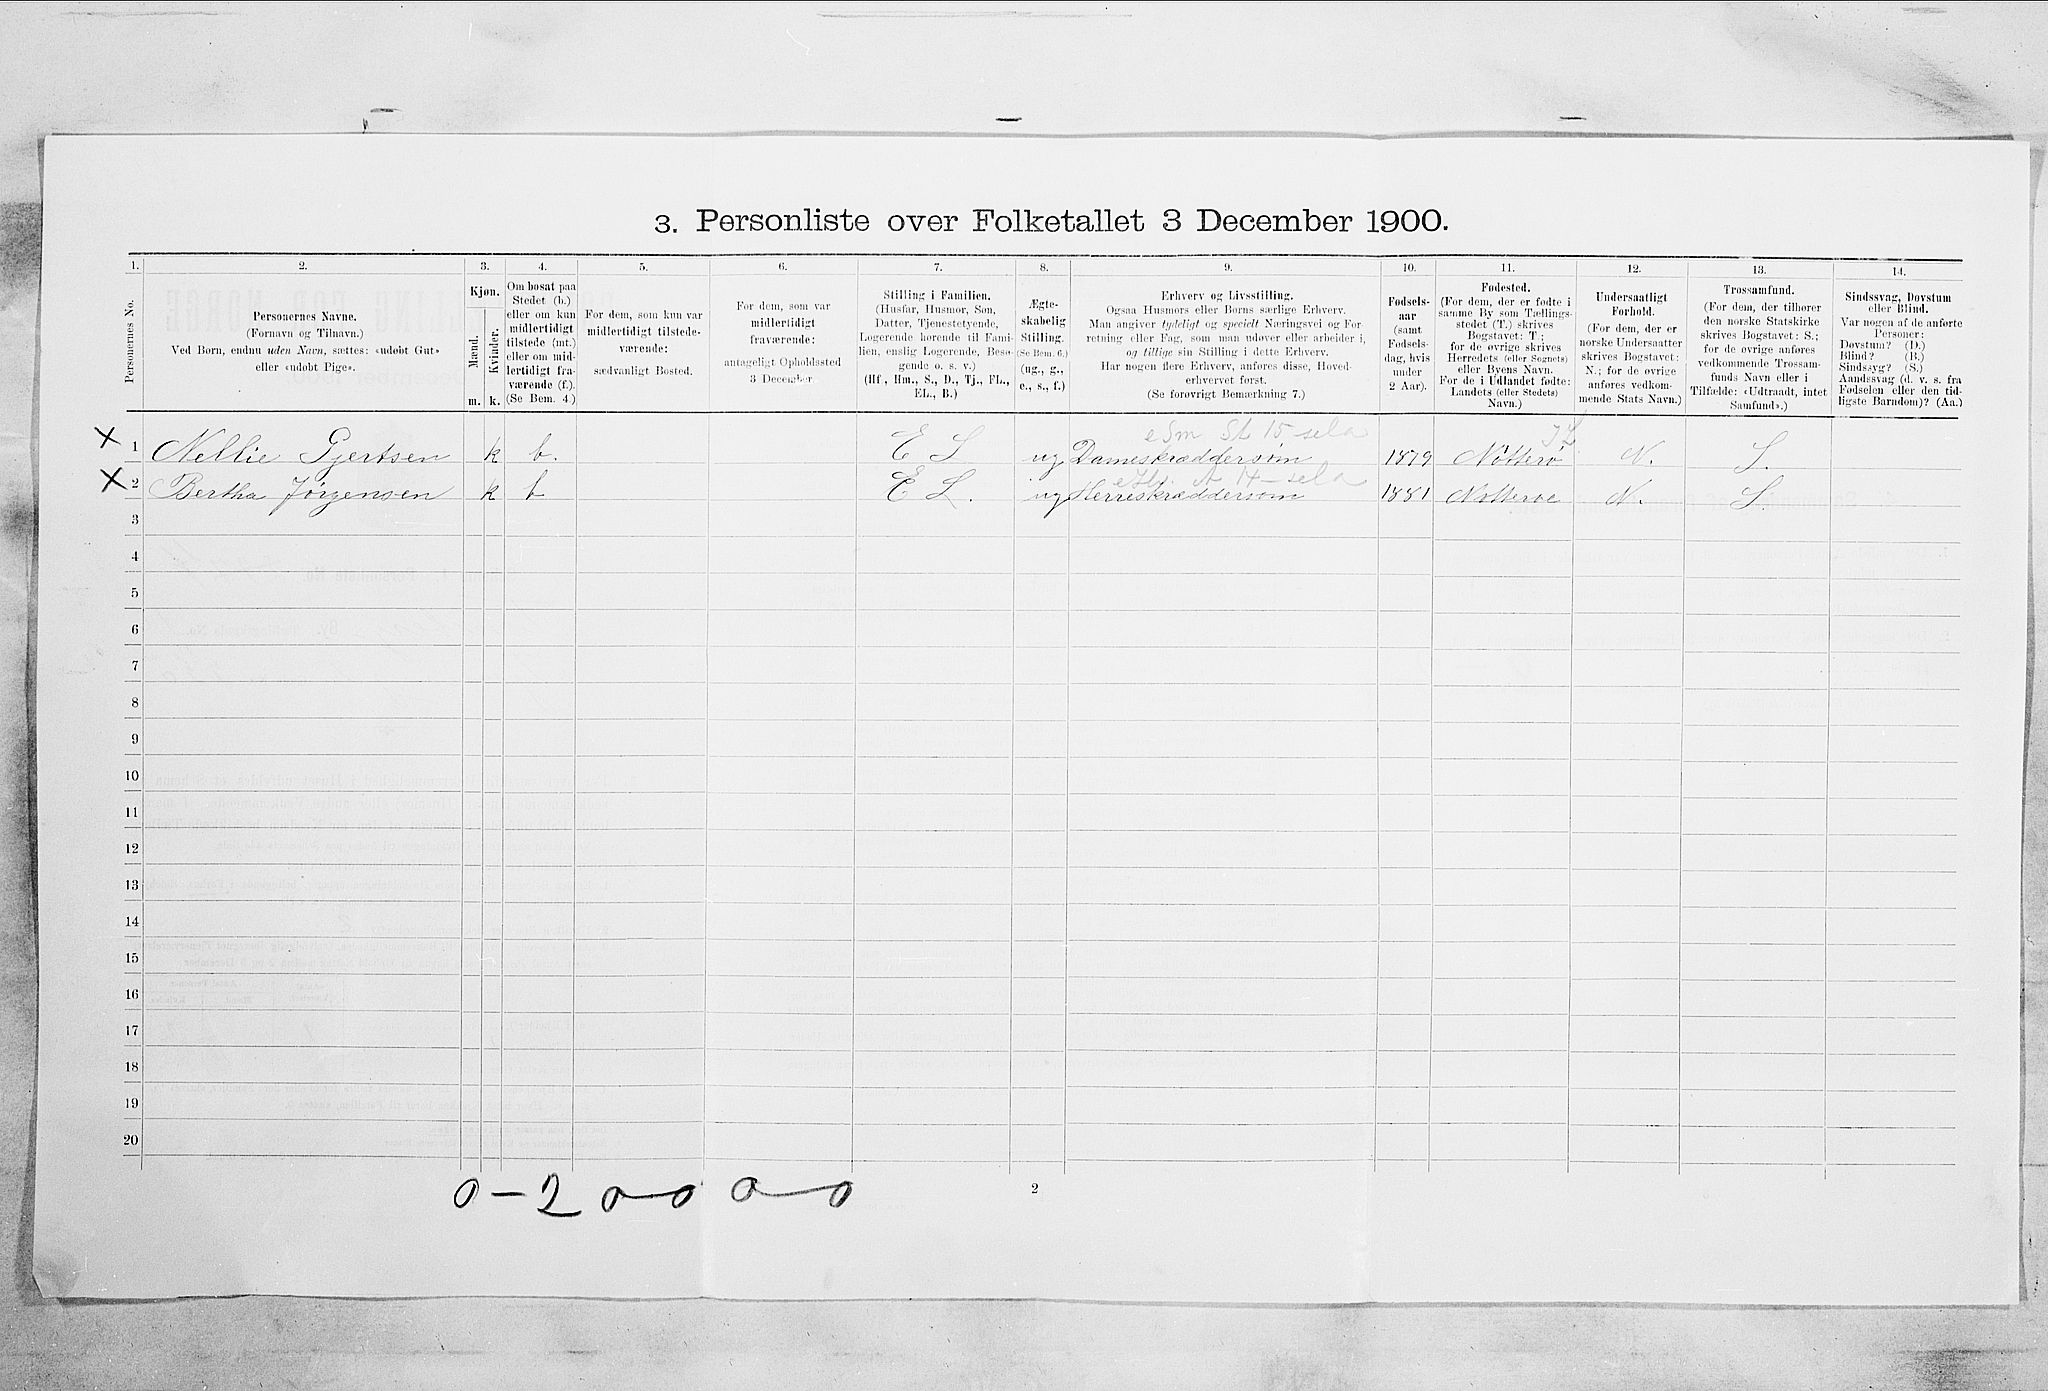 3. Personliste over Folketallet 3 December 1900.
1. 2. 3. 4. 5. 6. 7. 8. 9. 10. 11. 12. 13. 14.
Personernes No.
Personernes Navne.
(Fornavn og Tilnavn.)
Ved Børn, endnu uden Navn, sættes: «udøbt Gut»
eller «udøbt Pige».
Kjøn.
Mænd. Kvinder.
m. k.
Om bosat paa
Stedet (b.)
eller om kun
midlertidigt
tilstede (mt.)
eller om mid-
lertidigt fra-
værende (f.).
(Se Bem. 4.)
For dem, som kun var
midlertidigt tilstede-
værende:
sædvanligt Bosted.
For dem, som var
midlertidigt
fraværende:
antageligt Opholdssted
3 December.
Stilling i Familien.
(Husfar, Husmor, Søn,
Datter, Tjenestetyende,
Logerende hørende til Fami-
lien, enslig Logerende, Besø-
gende o. s. v.)
(Hf., Hm., S., D., Tj., FL.,
EL., B.)
Ægte-
skabelig
Stilling.
(Se Bem. 6.)
(ug., g.,
e., s., f.)
Erhverv og Livsstilling.
Ogsaa Husmors eller Børns særlige Erhverv.
Man angiver tydeligt og specielt Næringsvei og For
retning eller Fag, som man udøver eller arbeider i,
og tillige sin Stilling i dette Erhverv.
Har nogen flere Erhverv, anføres disse, Hoved-
erhvervet først.
(Se forøvrigt Bemærkning 7.)
Fødsels-
aar
(samt
Fødsels-
dag, hvis
under
2 Aar).
Fødested.
(For dem, der er fødte i
samme By som Tællings-
stedet (T.) skrives
Bogstavet: T.;
for de øvrige skrives
Herredets (eller Sognets)
eller Byens Navn.
For de i Udlandet fødte:
Landets (eller Stedets)
Navn.)
Undersaatligt
Forhold.
(For dem, der er
norske Undersaatter
skrives Bogstavet:
N.; for de øvrige
anføres vedkom-
mende Stats Navn.)
Trossamfund.
(For dem, der tilhører
den norske Statskirke
skrives Bogstavet: S.;
for de øvrige anføres
vedkommende Trossam-
funds Navn eller i
Tilfælde: «Udtraadt, intet
Samfund».)
Sindssvag, Døvstum
eller Blind.
Var nogen af de anførte
Personer:
Døvstum? (D.)
Blind? (B.)
Sindssyg? (S.)
Aandssvag (d. v. s. fra
Fødselen eller den tid-
ligste Barndom)? (Aa.)
x 1 Nellie Gjertsen k b. E L ug Dameskræddersøm 1879 Nötterø N. S.
x 2 Bertha Jørgensen k b E L. ug Herreskræddersøm 1881 Nötterøe N. S.
3
4
5
6
7
8
9
10
11
12
13
14
15
16
17
18
19
20
0 - 2 0 - 0 0 - 0
2